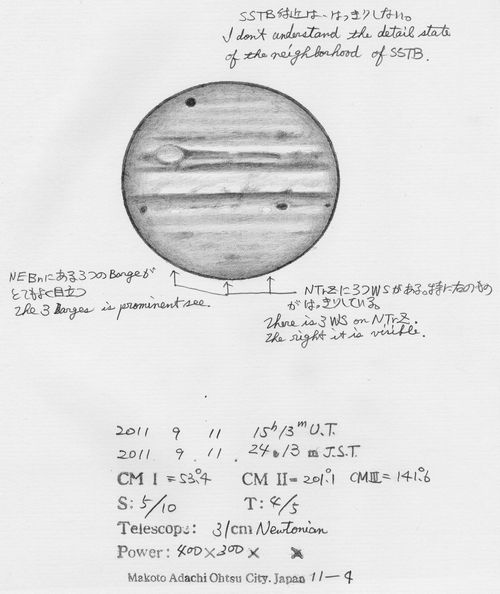 SSTB付近は、はっきりしない。
I don't understand the detail state
of the neighborhood of SSTB.
NEBnにある3つのBargeが
とてもよく目立つ
The 3 Barges is prominent see.
NTrZに3つWSがある。特に右のもの
がはっきりしている。
There is 3 WS on NTrZ.
The right it is visible.
2011 9 11 15h 13m U.T.
2011 9 11 . 24 h 13 m J.S.T.
CM I = 53.°4 CM II= 201.°1 CMIII= 141.°6
S: 5/10 T: 4/5
Telescope: 31cm Newtonian
Power: 400× 300 ×
Makoto Adachi Ohtsu City. Japan 11-4